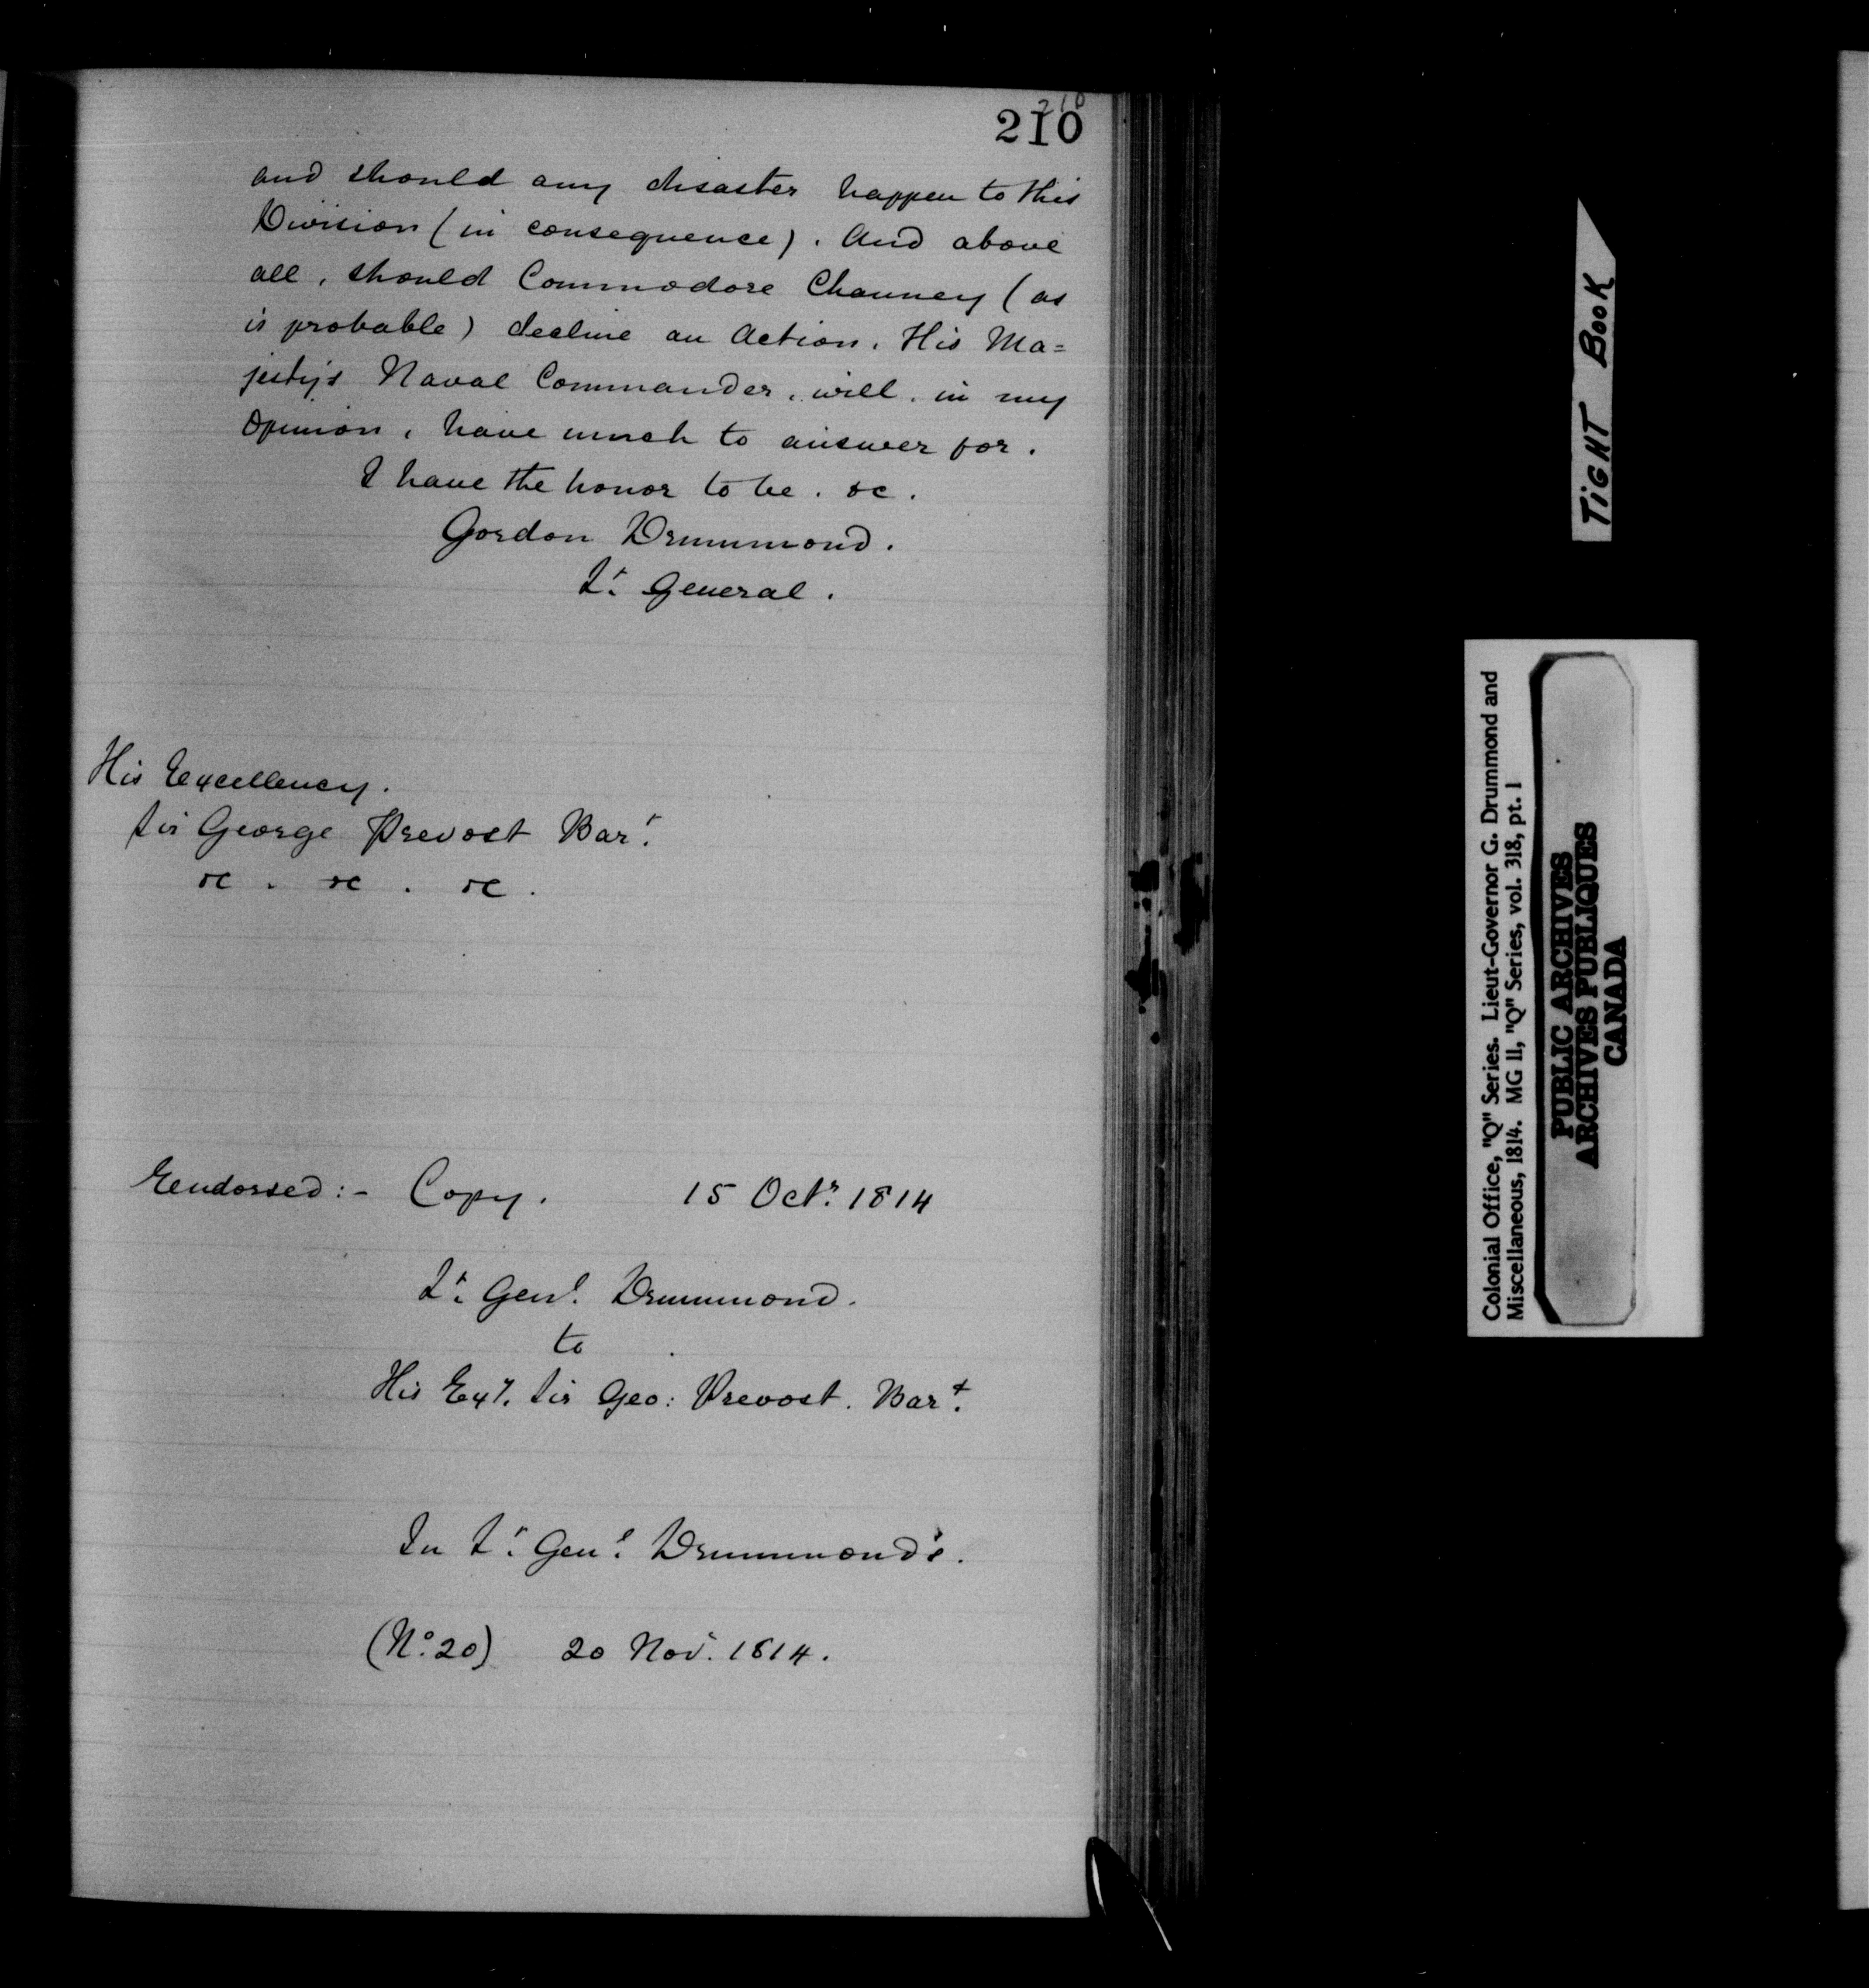 210
210
and should any disaster happen to this
Division (in consequence). And above
all, should Commodore Chauncy (as
is probable) decline an Action. His Ma=
jesty's Naval Commander, will, in my
Opinion, have much to answer for.
I have the honor to be. &c.
Gordon Drummond.
Lt. General.
His Excellency.
Sir George Prevost Bart.
&c. &c. &c.
Endorsed:- Copy. 15 Octr. 1814
Lt. Genl. Drummond.
to
His Exy. Sir Geo: Prevost. Bart.
In Lt. Genl. Drummond's.
(No. 20) 20 Nov. 1814.
TIGHT BOOK
Colonial Office, "Q" Series. Lieut-Governor G. Drummond and
Miscellaneous, 1814. MG 11, "Q" Series, vol. 318, pt. 1
PUBLIC ARCHIVES
ARCHIVES PUBLIQUES
CANADA